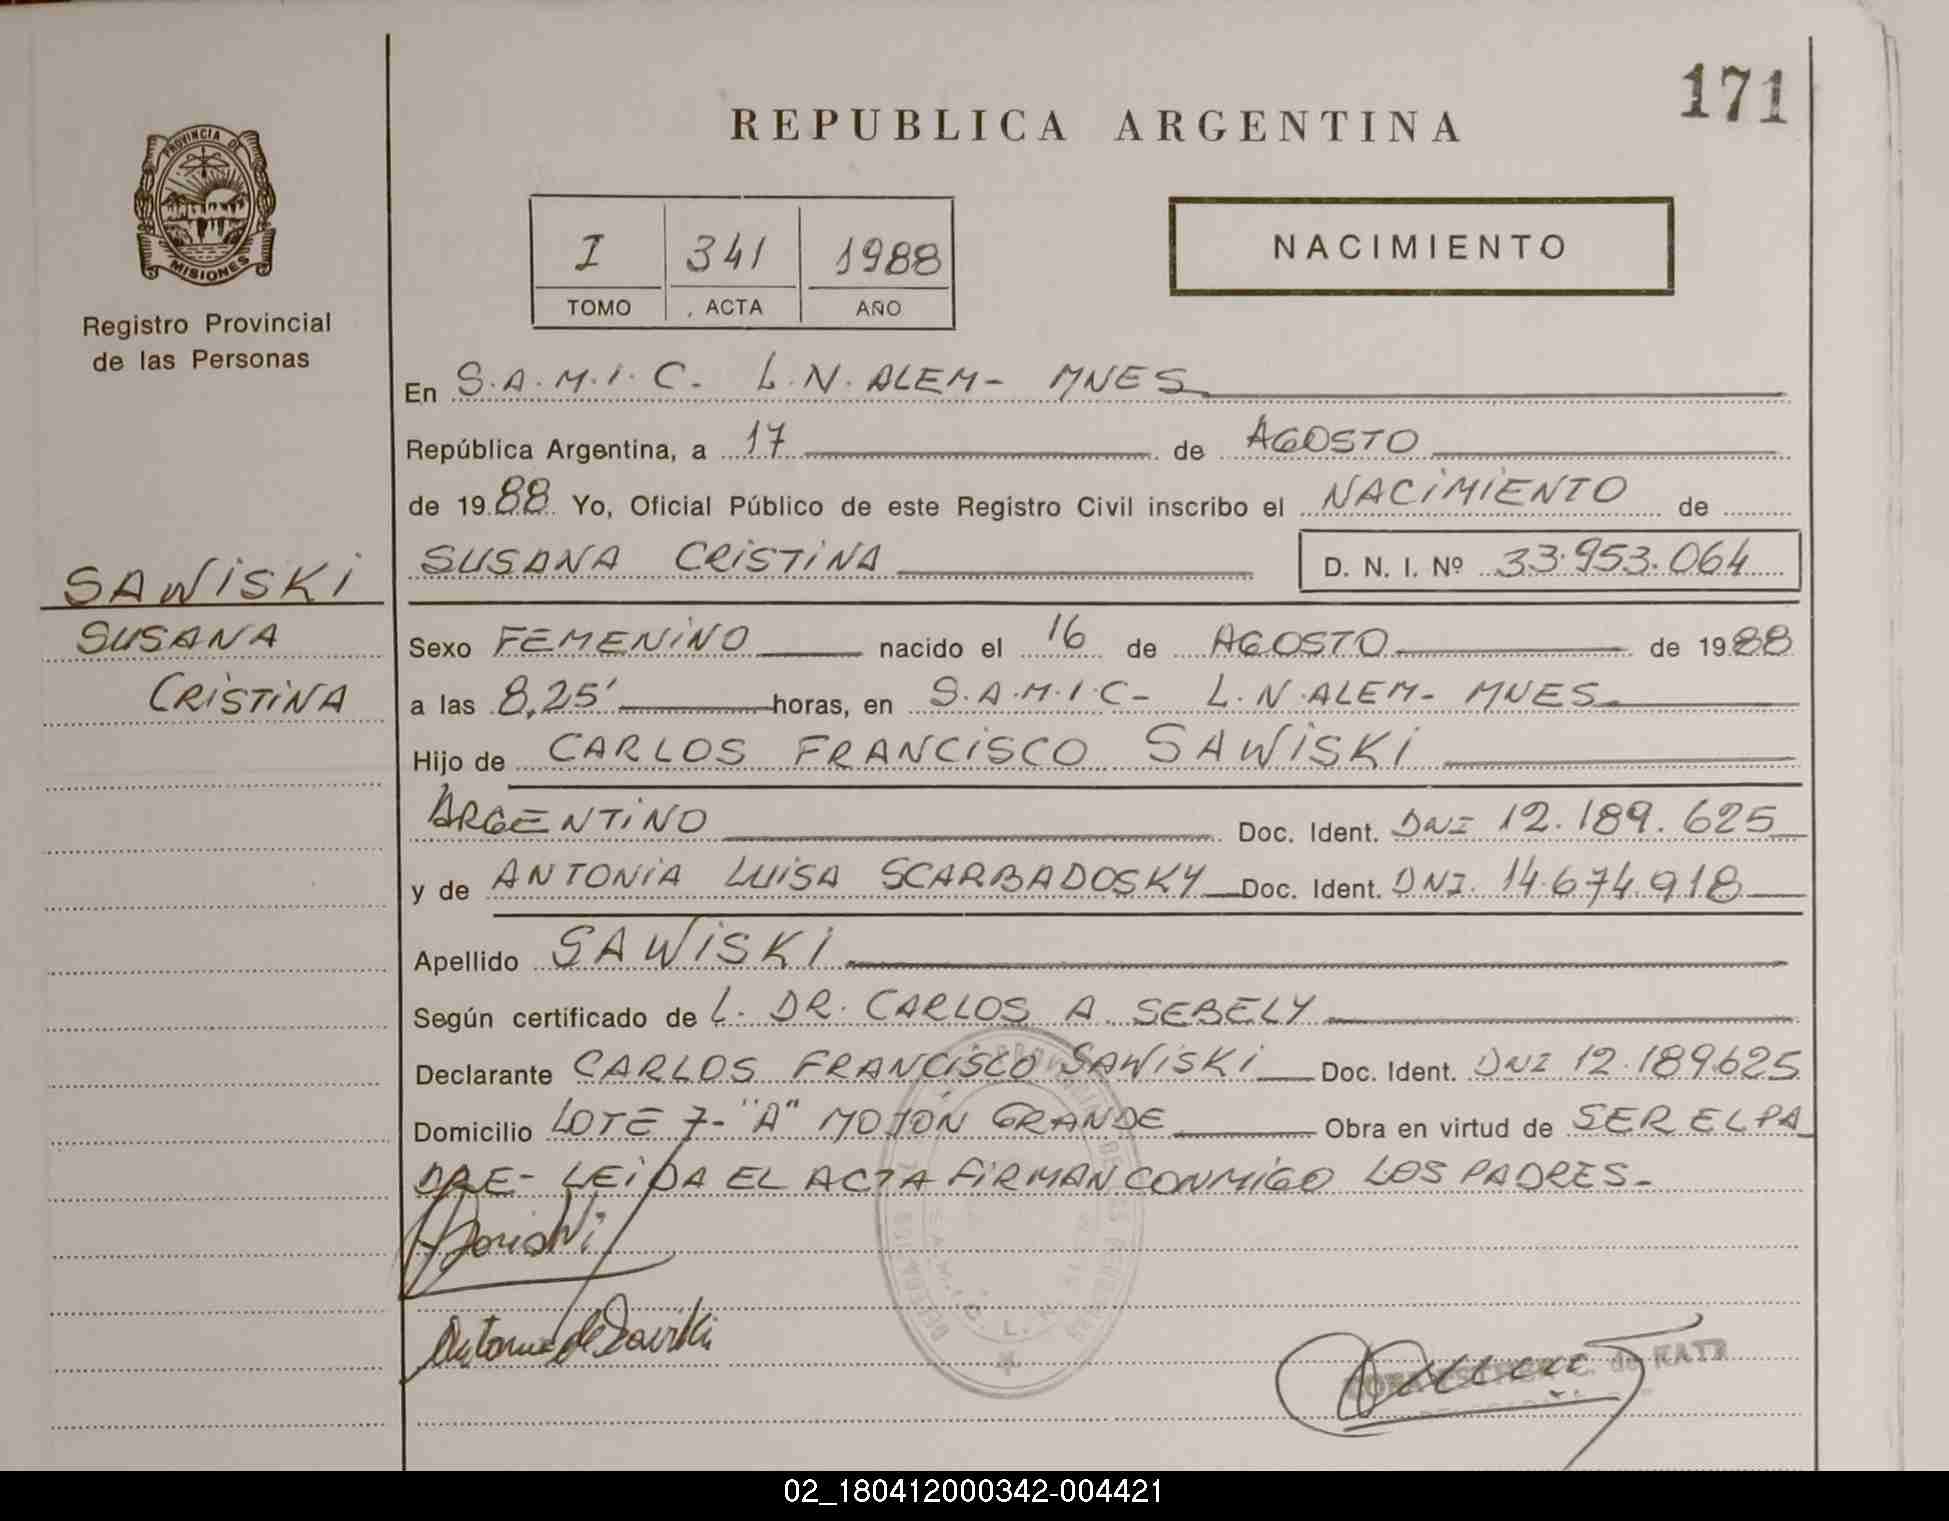 171
REPUBLICA ARGENTINA
PROVINCIA DE
MISIONES
Registro Provincial
de las Personas
I 341 1988
TOMO ACTA AÑO
NACIMIENTO
En S.A.M.I.C. L.N. ALEM- MNES
República Argentina, a 17 de AGOSTO
de 1988 Yo, Oficial Público de este Registro Civil inscribo el NACIMIENTO de
SUSANA CRISTINA D. N. I. Nº 33.953.064
SAWISKI
SUSANA
CRISTINA
Sexo FEMENINO nacido el 16 de AGOSTO de 1988
a las 8,25' horas, en S.A.M.I.C- L.N.ALEM- MNES
Hijo de CARLOS FRANCISCO SAWISKI
ARGENTINO Doc. Ident. DNI 12.189.625
y de ANTONIA LUISA SCARBADOSKY Doc. Ident. DNI. 14.674.918
Apellido SAWISKI
Según certificado de L. DR. CARLOS A. SEBELY
Declarante CARLOS FRANCISCO SAWISKI Doc. Ident. DNI 12.189625
Domicilio LOTE 7- "A" MOJÓN GRANDE Obra en virtud de SER EL PA
DRE- LEIDA EL ACTA FIRMAN CONMIGO LOS PADRES-
S.A.M.I.C. L. N.
de KATZ
02_180412000342-004421